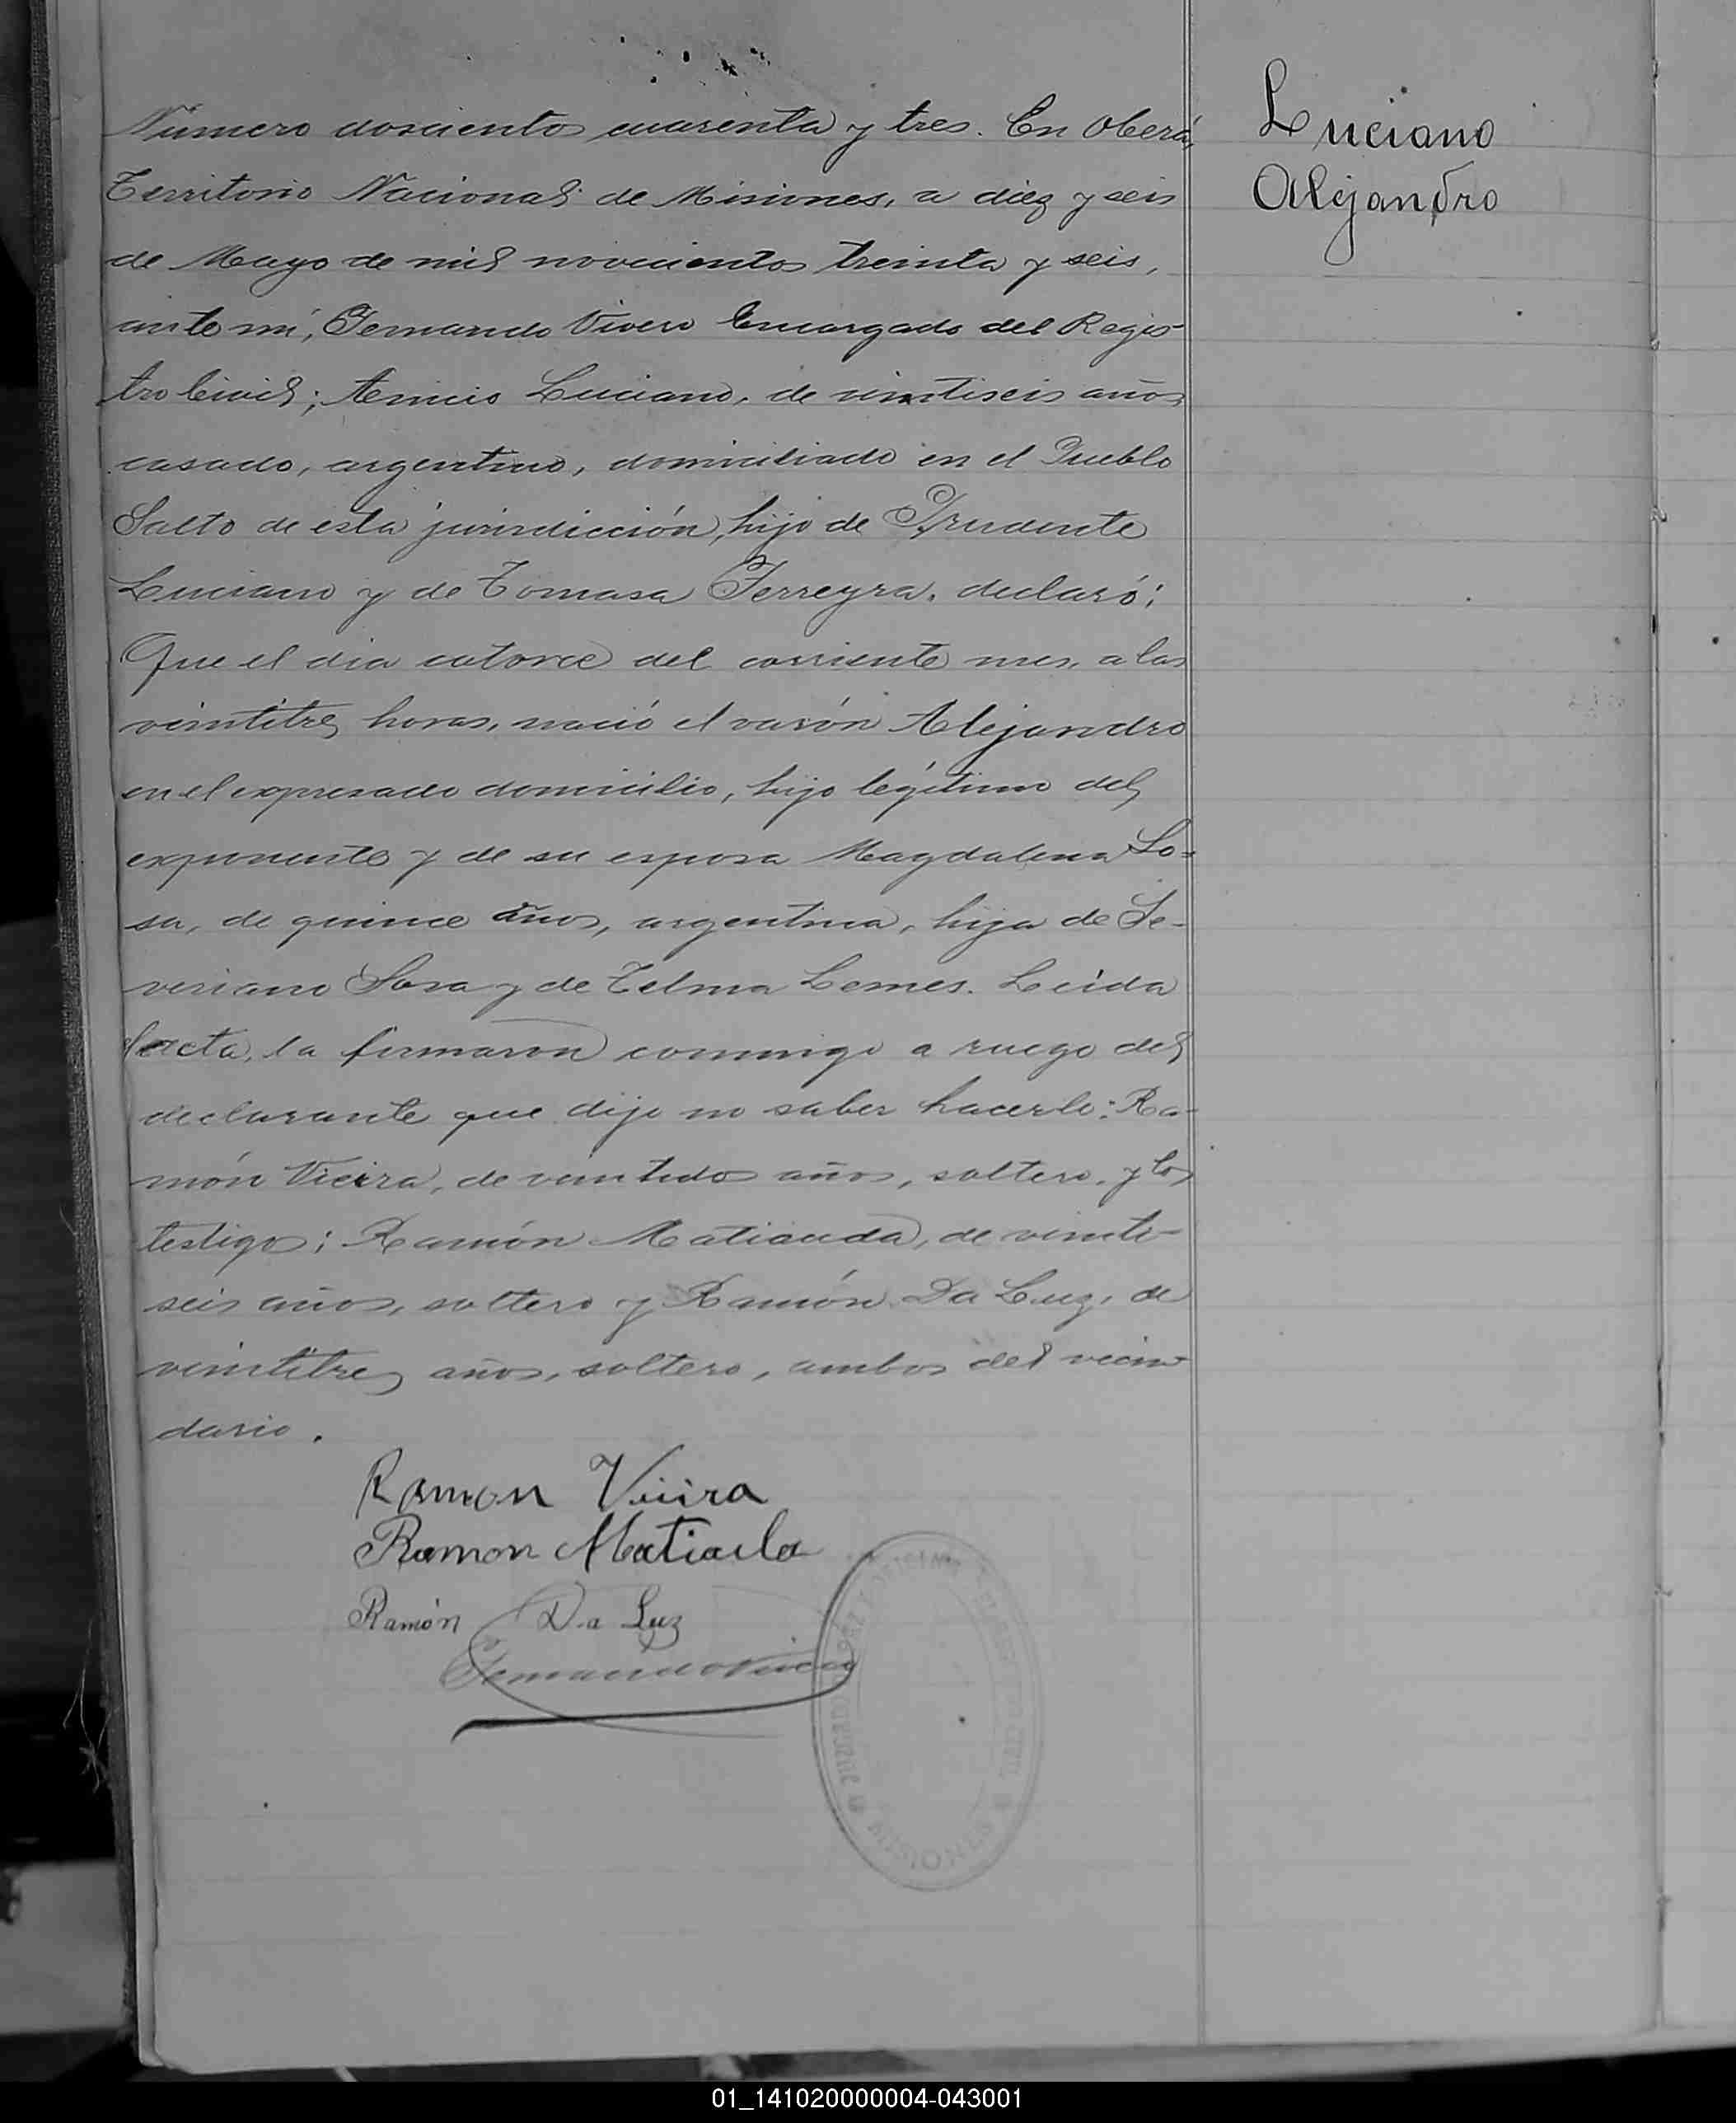 Número doscientos cuarenta y tres. En Oberá,
Territorio Nacional de Misiones, a diez y seis
de Mayo de mil novecientos treinta y seis,
ante mí, Fernando Vivero Encargado del Regis-
tro Civil; Luciano, de vintiseis años
casado, argentino, domiciliado en el Pueblo
Salto de esta jurisdicción, hijo de Prudente
Luciano y de Tomasa Ferreyra, declaró:
Que el dia catorce del corriente mes, a las
vintitres horas, nació el varón Alejandro
en el expresado domicilio, hijo legítimo del
exponente y de su esposa Magdalena So-
sa, de quince años, argentina, hija de Se-
veriano Sosa y de Telma Lemes. Leida
el acta, la firmaron conmigo a ruego del
declarante que dijo no saber hacerlo: Ra-
món Vieira, de vintidos años, soltero, y los
testigos: Ramón Matiauda, de vinti-
seis años, soltero y Ramón Da Luz, de
vintitres años, soltero, ambos del vecin-
dario.
Ramon Vieira
Ramon Matiauda
Ramón Da Luz
Fernando Vivero
MISIONES
Luciano
Alejandro
01_141020000004-043001